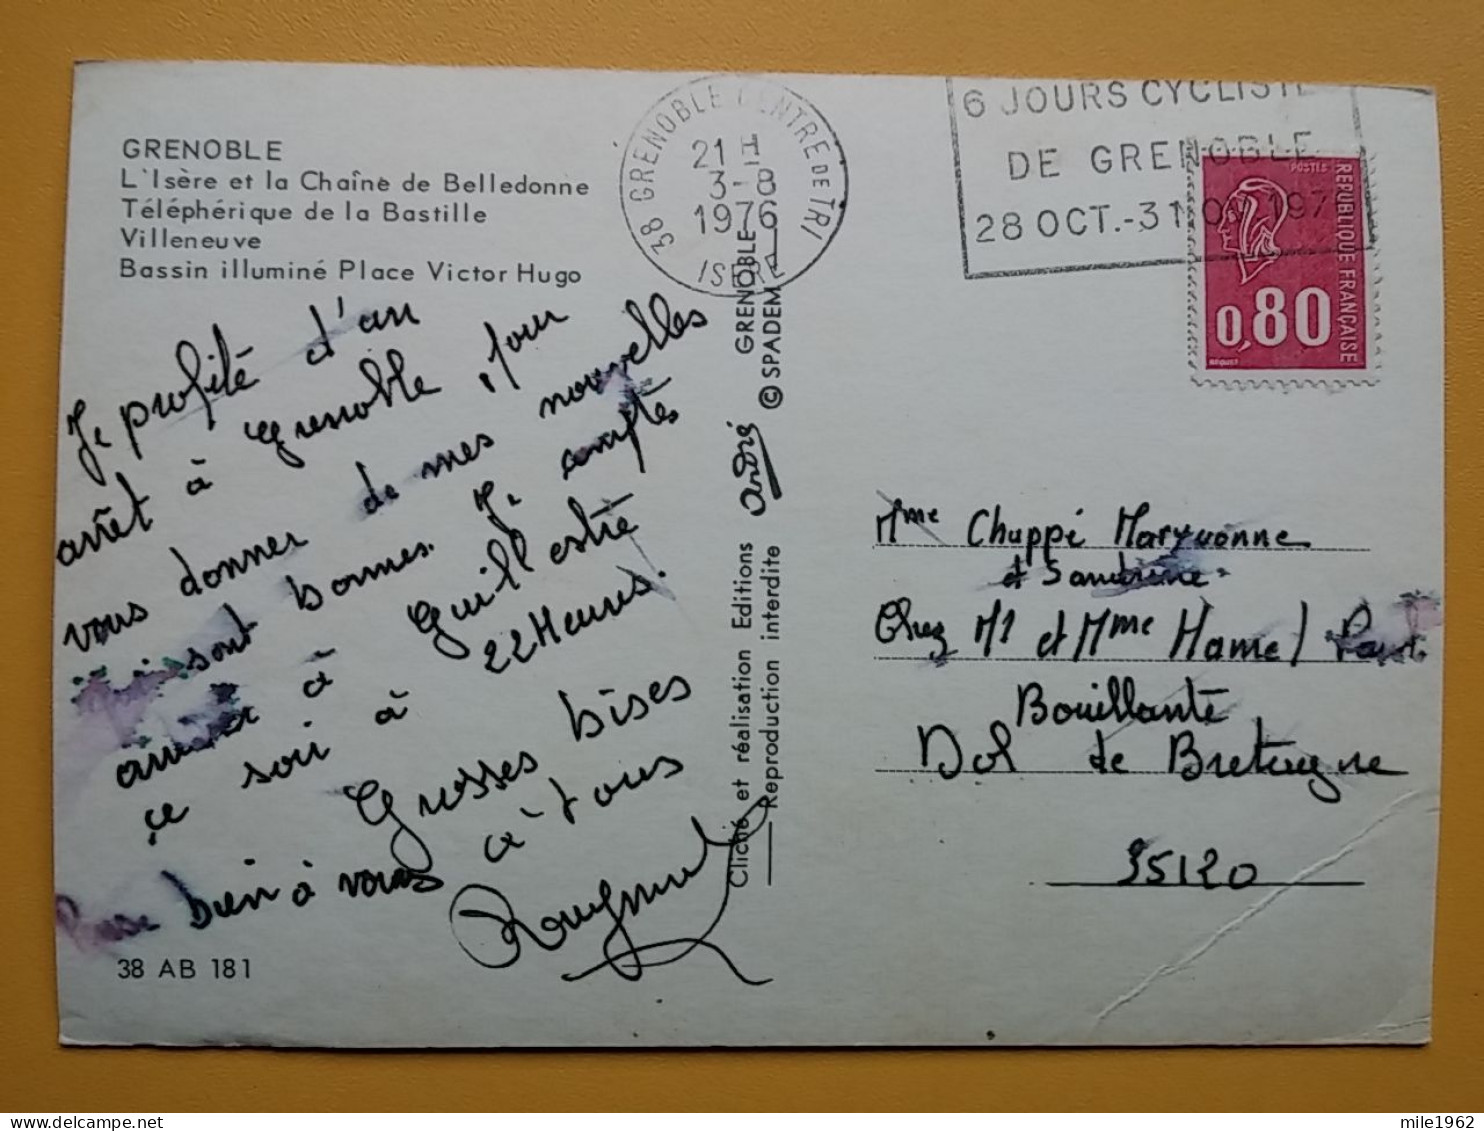 GRENOBLE
L'Isère et la Chaîne de Belledonne
Téléphérique de la Bastille
Villeneuve
Bassin illuminé Place Victor Hugo
Je profite d'un
arrêt à Grenoble, pour
vous donner de mes nouvelles
qui sont bonnes. Je comptes
arriver à Guillestre
ce soir à 22 Heures.
Grosses bises
à tous
bien à vous
38 AB 181
38 GRENOBLE CENTRE DE TRI
21 H
3-8
1976
ISERE
6 JOURS CYCLISTE
DE GRENOBLE
28 OCT.-31
POSTES
REPUBLIQUE FRANÇAISE
0,80
BEQUET
Cliché et réalisation Editions André GRENOBLE
Reproduction interdite © SPADEM
Mme Chuppé Maryvonne
et Sandrine
Chez Mr et Mme Hamel
Bouillante
Dol de Bretagne
35120
mile1962